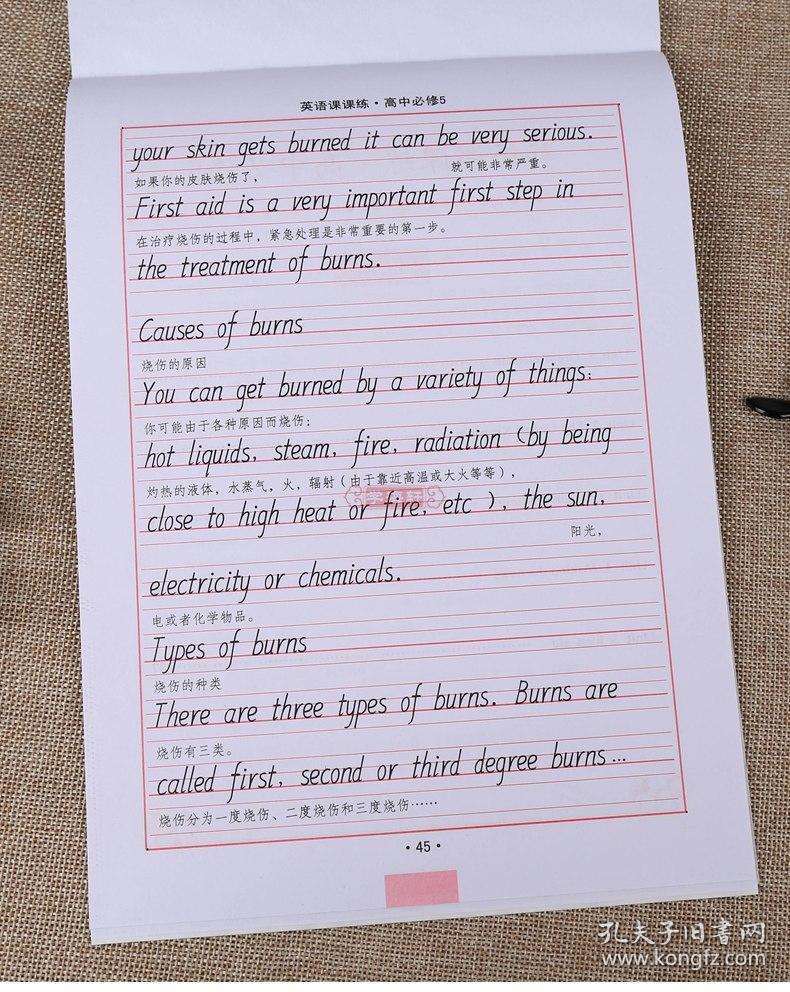 英语课课练·高中必修5
your skin gets burned it can be very serious.
如果你的皮肤烧伤了， 就可能非常严重。
First aid is a very important first step in
在治疗烧伤的过程中，紧急处理是非常重要的第一步。
the treatment of burns.
Causes of burns
烧伤的原因
You can get burned by a variety of things:
你可能由于各种原因而烧伤：
hot liquids, steam, fire, radiation (by being
灼热的液体，水蒸气，火，辐射（由于靠近高温或大火等等），
close to high heat or fire, etc ), the sun,
阳光，
electricity or chemicals.
电或者化学物品。
Types of burns
烧伤的种类
There are three types of burns. Burns are
烧伤有三类。
called first, second or third degree burns...
烧伤分为一度烧伤、二度烧伤和三度烧伤……
·45·
孔夫子旧书网
www.kongfz.com